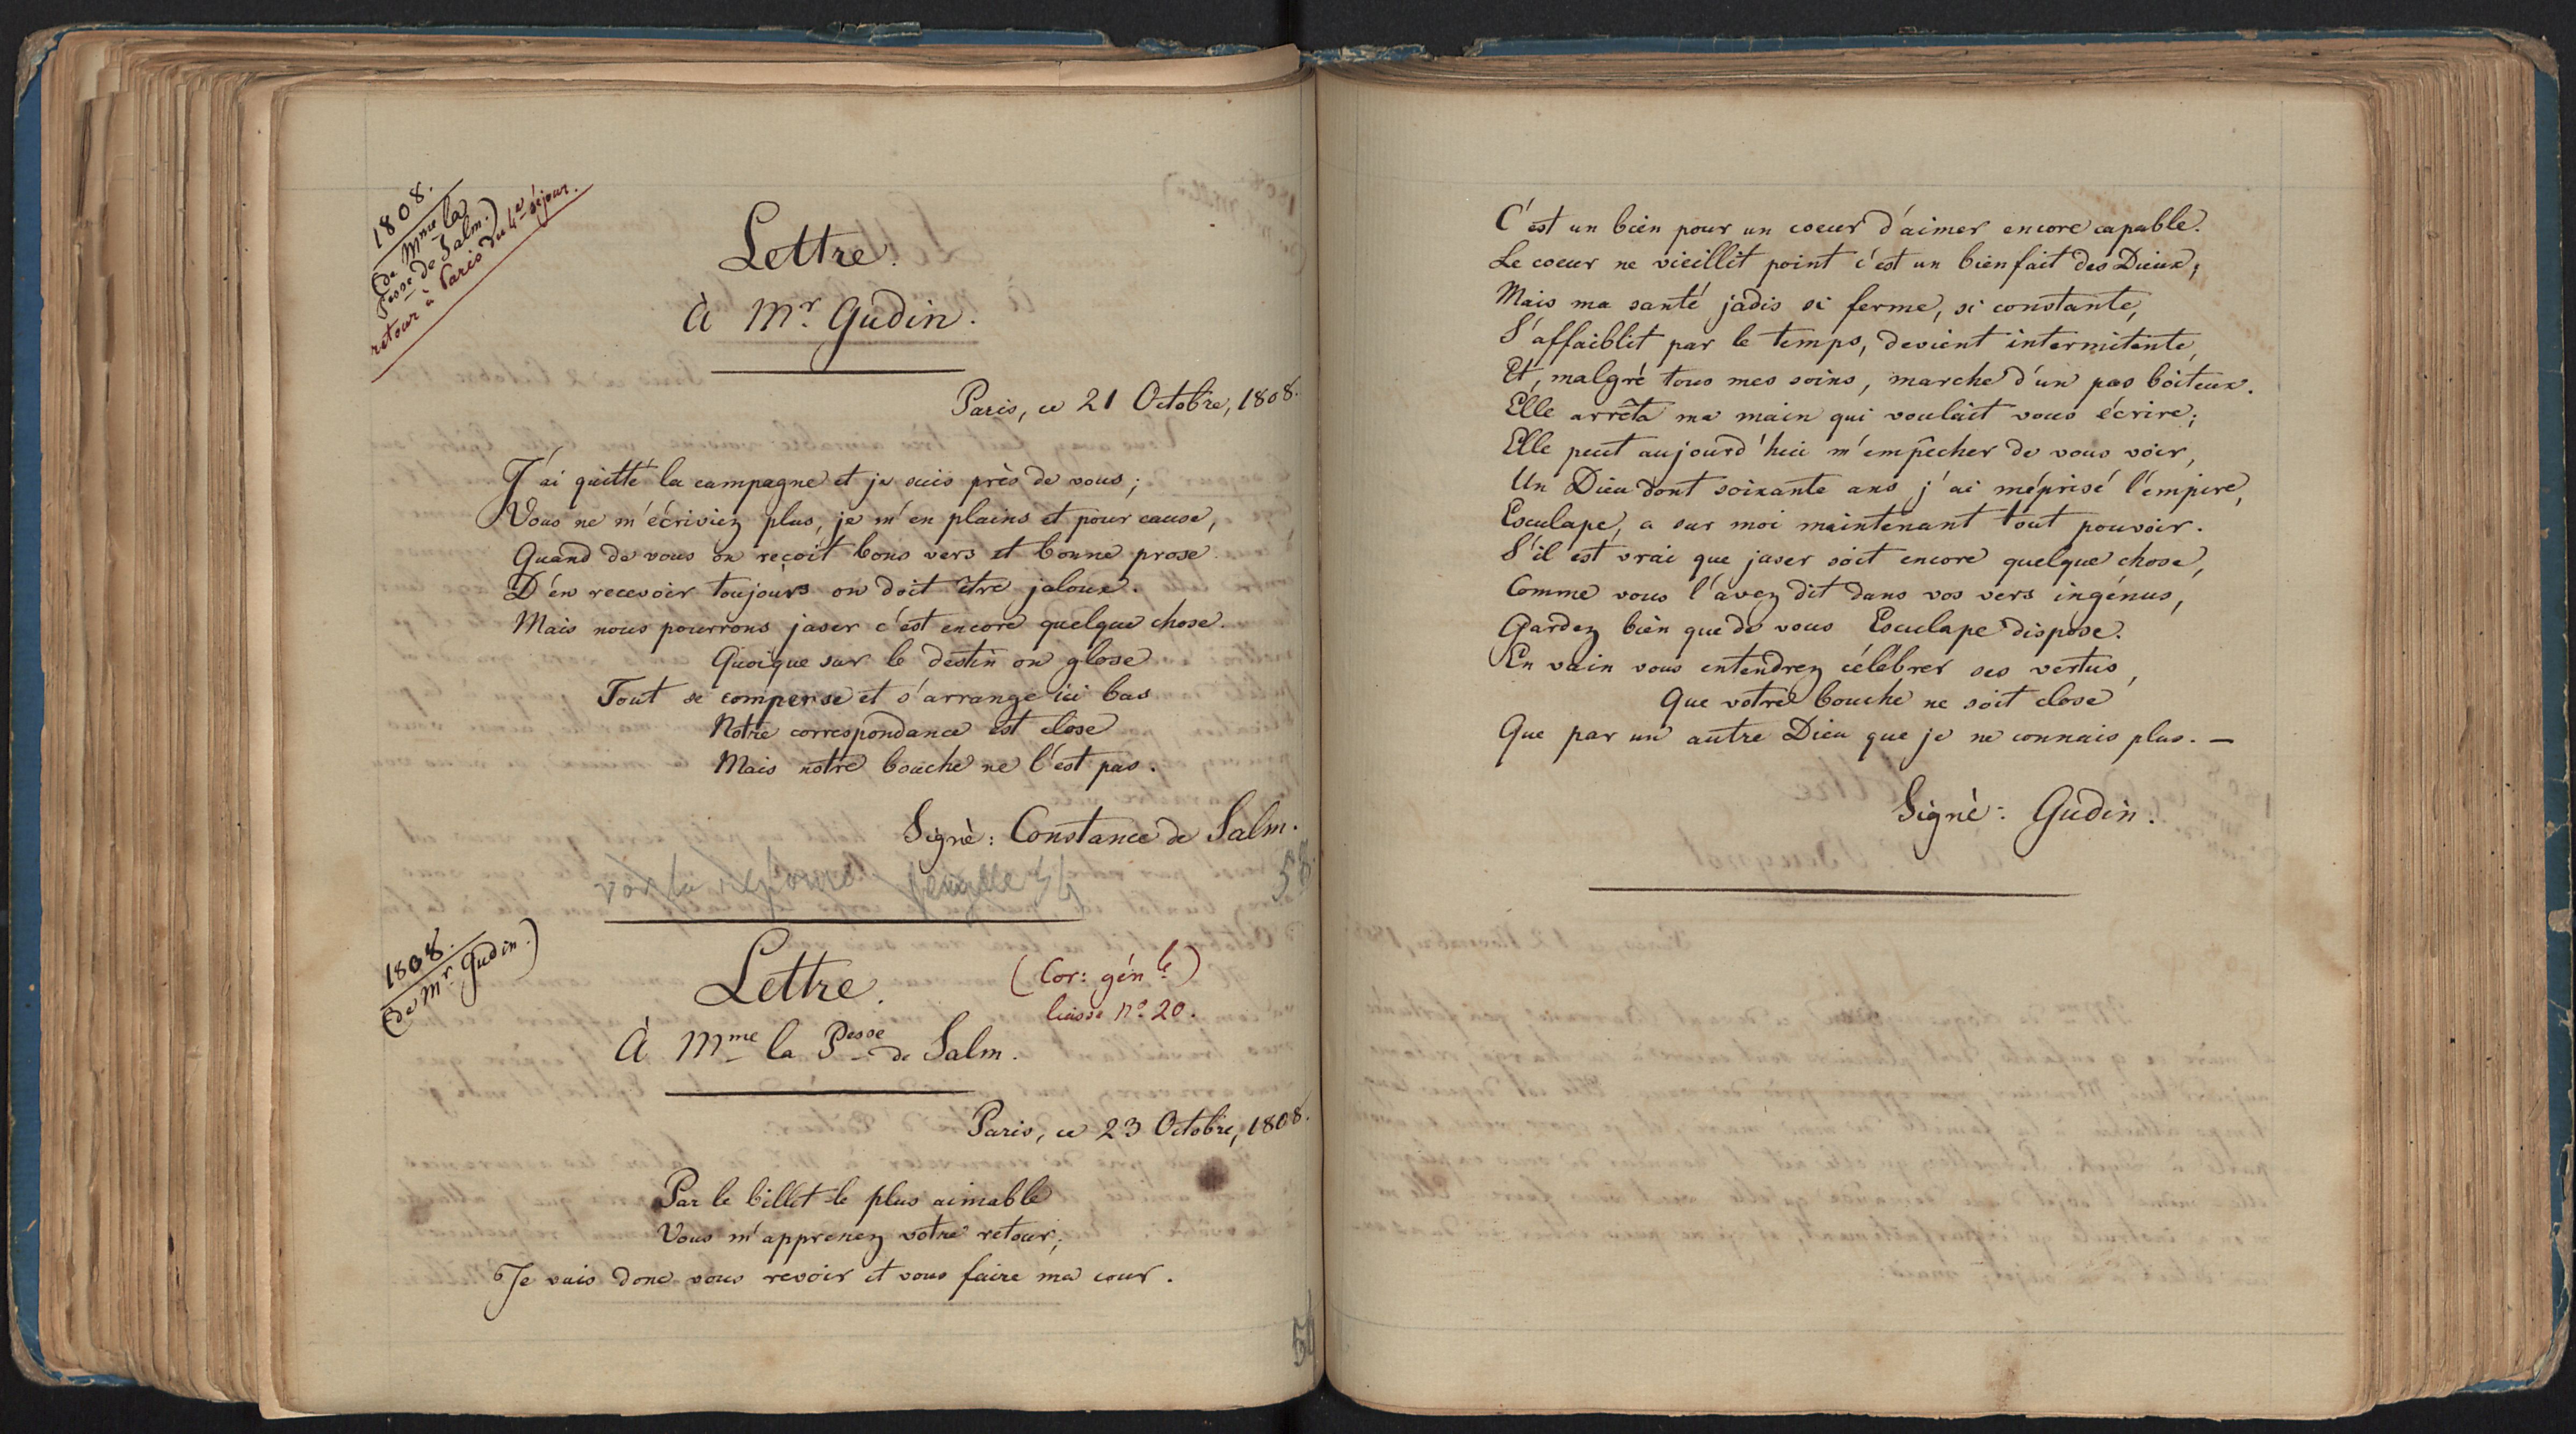 1808.
(de Mme la
Pesse de Salm.)
retour à Paris du 4e séjour.
Lettre.
À Mr. Gudin.
Paris, ce 21 Octobre, 1808.
J'ai quitté la campagne et je suis près de vous;
Vous ne m'écriviez plus, je m'en plains et pour cause,
Quand de vous on reçoit bons vers et bonne prose
D'en recevoir toujours on doit être jaloux.
Mais nous pourrons jaser c'est encore quelque chose.
Quoique sur le destin on glose
Tout se compense et s'arrange ici bas
Notre correspondance est close
Mais notre bouche ne l'est pas.
Signé: Constance de Salm.
voir la réponse 54
58.
1808.
(de Mr Gudin.)
Lettre.
(Cor: génle)
liasse no. 20.
À Mme la Pesse de Salm.
Paris, ce 23 Octobre, 1808.
Par le billet le plus aimable
Vous m'apprenez votre retour;
Je vais donc vous revoir et vous faire ma cour.
C'est un bien pour un coeur d'aimer encore capable.
Le coeur ne vieillit point c'est un bienfait des Dieux;
Mais ma santé jadis si ferme, si constante,
S'affaiblit par le temps, devient intermitente,
Et, malgré tous mes soins, marche d'un pas boiteux.
Elle arrêta ma main qui voulait vous écrire;
Elle peut aujourd'hui m'empêcher de vous voir,
Un Dieu dont soixante ans j'ai méprisé l'empire,
Esculape, a sur moi maintenant tout pouvoir.
S'il est vrai que jaser soit encore quelque chose,
Comme vous l'avez dit dans vos vers ingénus,
Gardez bien que de vous Esculape dispose.
En vain vous entendrez célébrer ses vertus,
Que votre bouche ne soit close
Que par un autre Dieu que je ne connais plus. —
Signé: Gudin.